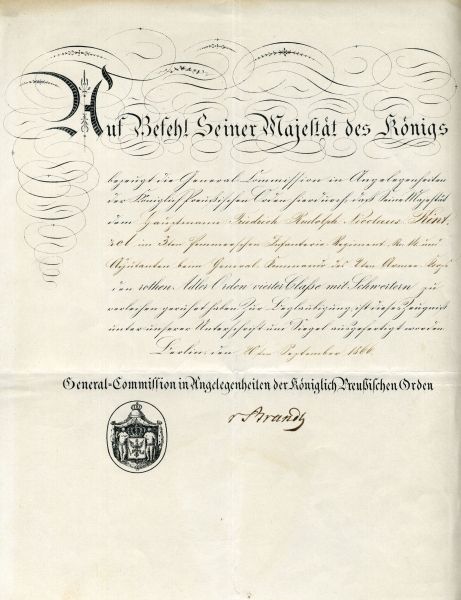 Auf Befehl Seiner Majestät des Königs
bezeugt die General-Commission in Angelegenheiten
der Königlich Preußischen Orden hierdurch, daß Seine Majestät
dem Hauptmann Friedrich Rudolph Nicolaus
im 3ten Pommerschen Infanterie Regiment No. 14 und
Adjutanten beim General-Kommando des 2ten Armee-Corps
den rothen Adler Orden vierter Classe mit Schwertern zu
verleihen geruhet haben. Zur Beglaubigung ist dieses Zeugniß
unter unserer Unterschrift und Siegel ausgefertigt worden.
Berlin, den September 1866
General-Commission in Angelegenheiten der Königlich Preußischen Orden